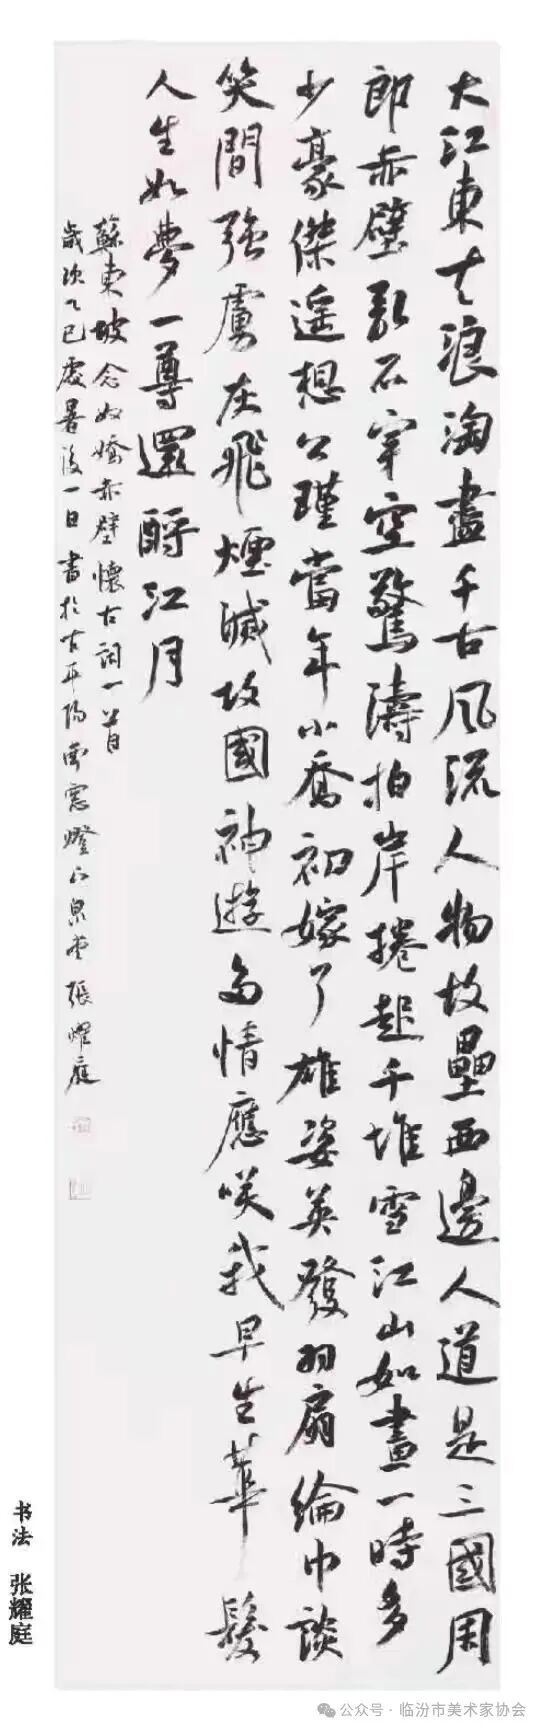 大江東去浪淘盡千古風流人物故壘西邊人道是三國周
郎赤壁亂石穿空驚濤拍岸捲起千堆雪江山如畫一時多
少豪傑遥想公瑾當年小喬初嫁了雄姿英發羽扇綸巾談
笑間强虜灰飛煙滅故國神遊多情應笑我早生華髮
人生如夢一尊還酹江月
蘇東坡念奴嬌赤壁懷古詞一首
歲次乙巳處暑後一日書於古平陽雨窓燈下泉堂張耀庭
书法 张耀庭
公众号·临汾市美术家协会